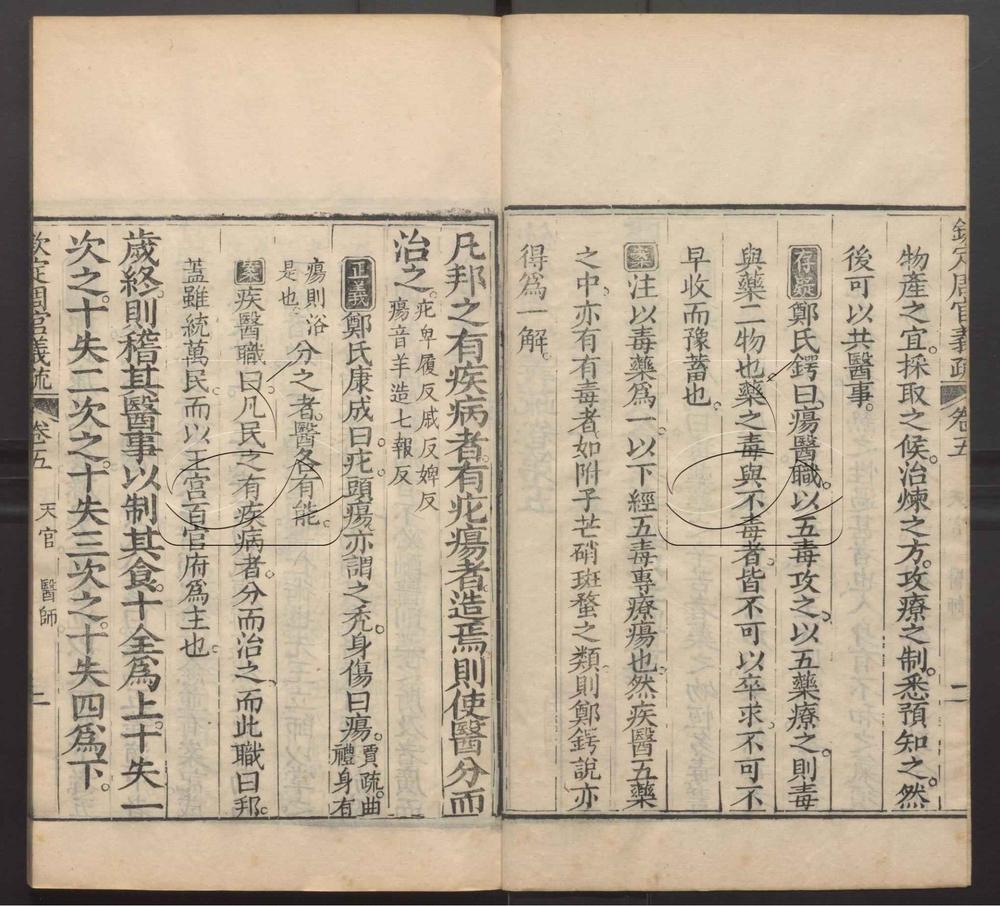 欽定周官義疏 卷五 二
物產之宜。採取之候。治煉之方。攻療之制。悉預知之。然
後可以共醫事。
存疑 鄭氏鍔曰。瘍醫職。以五毒攻之。以五藥療之。則毒
與藥二物也。藥之毒與不毒者。皆不可以卒求。不可不
早收而豫蓄也。
案 注以毒藥爲一。以下經五毒專療瘍也。然疾醫五藥
之中。亦有有毒者。如附子芒硝斑蝥之類。則鄭鍔說亦
得爲一解。
凡邦之有疾病者。有疕瘍者。造焉。則使醫分而
治之。疕卑履反戚反婢反
瘍音羊造七報反
正義 鄭氏康成曰。疕。頭瘍。亦謂之禿。身傷曰瘍。賈疏。曲禮身有
瘍則浴是也。分之者。醫各有能。
案 疾醫職曰。凡民之有疾病者。分而治之。而此職曰邦。
蓋雖統萬民。而以王宮百官府爲主也。
歲終。則稽其醫事。以制其食。十全爲上。十失一
次之。十失二次之。十失三次之。十失四爲下。
欽定周官義疏 卷五 天官 醫師 二